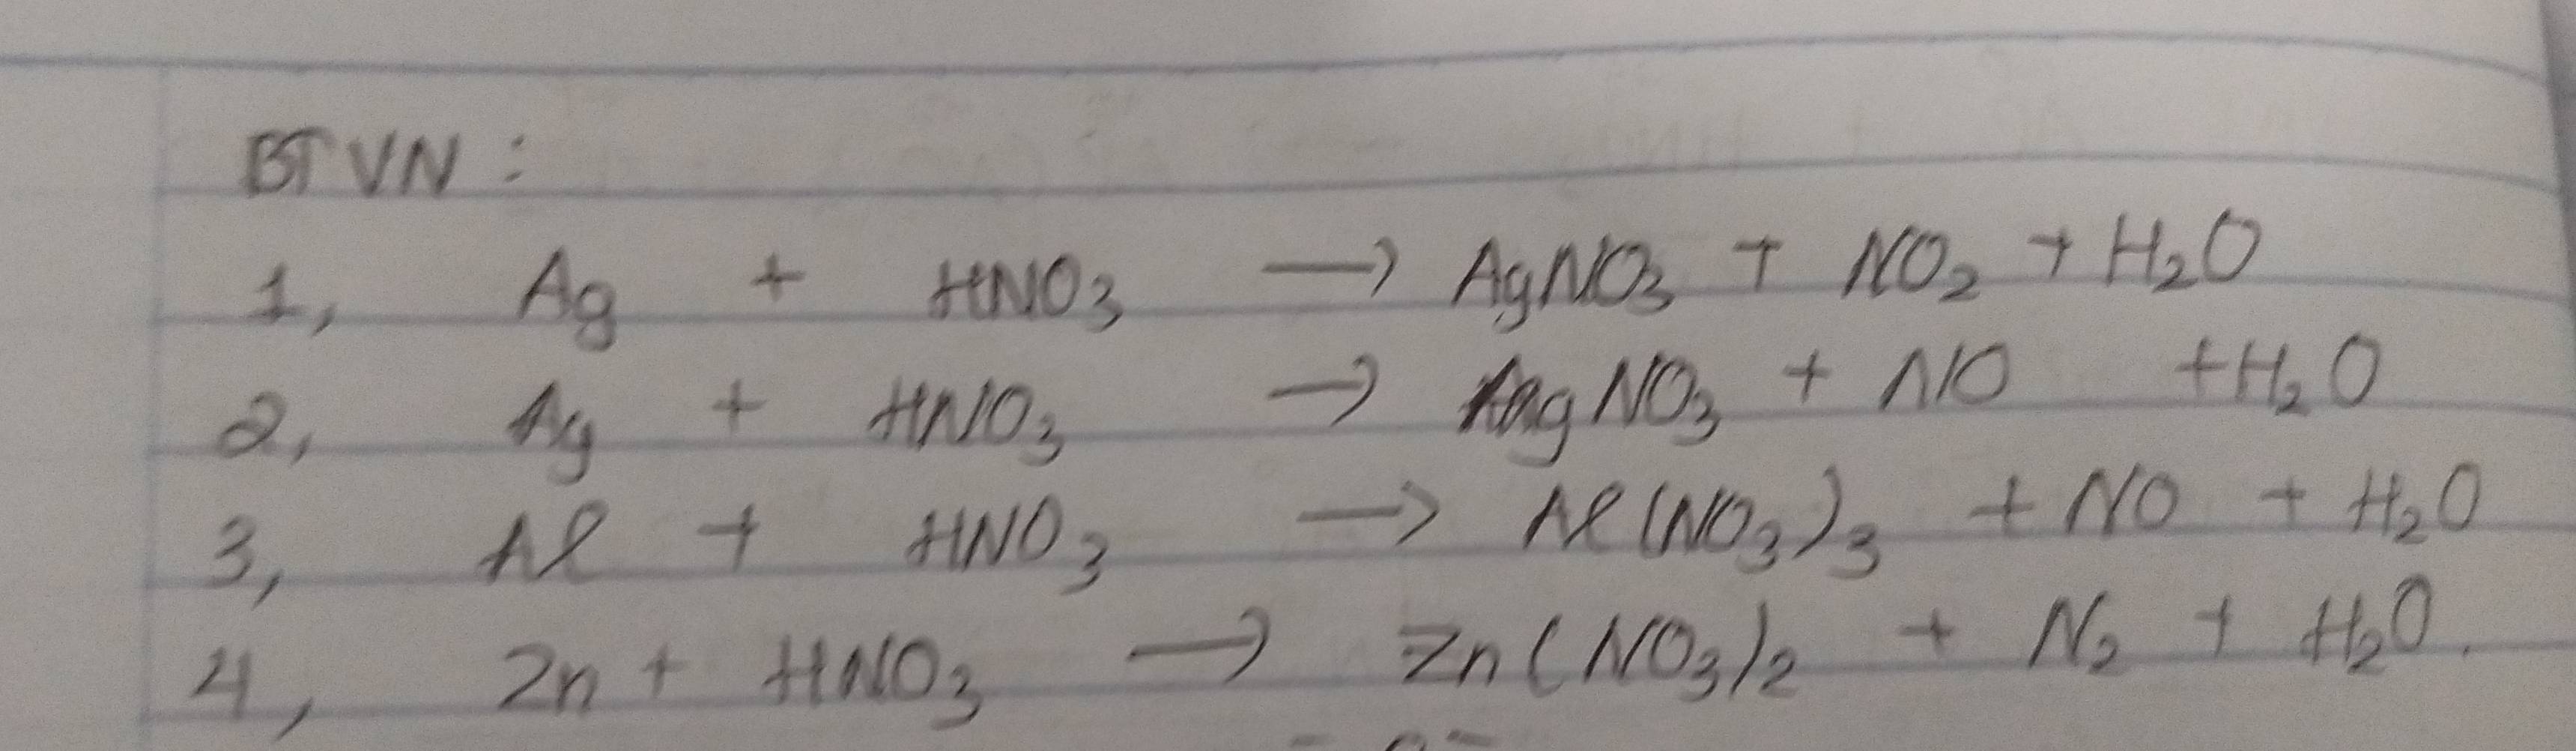 BTVN :
1, Ag + HNO₃ → AgNO₃ + NO₂ + H₂O
2, Ag + HNO₃ → AgNO₃ + NO + H₂O
3, Al + HNO₃ → Al(NO₃)₃ + NO + H₂O
4, Zn + HNO₃ → Zn(NO₃)₂ + N₂ + H₂O.